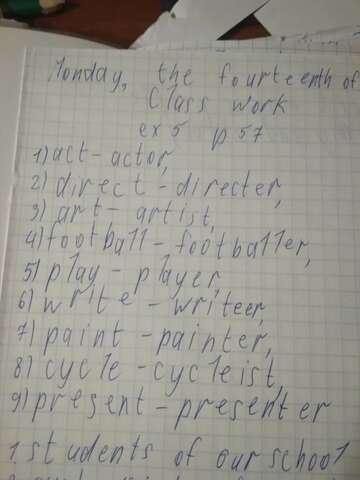 Monday, the fourteenth of
Class work
ex 5 p 57
1) act - actor,
2) direct - directer,
3) art - artist,
4) football - footballer,
5) play - player,
6) write - writeer,
7) paint - painter,
8) cycle - cycleist,
9) present - presenter
1 students of our school